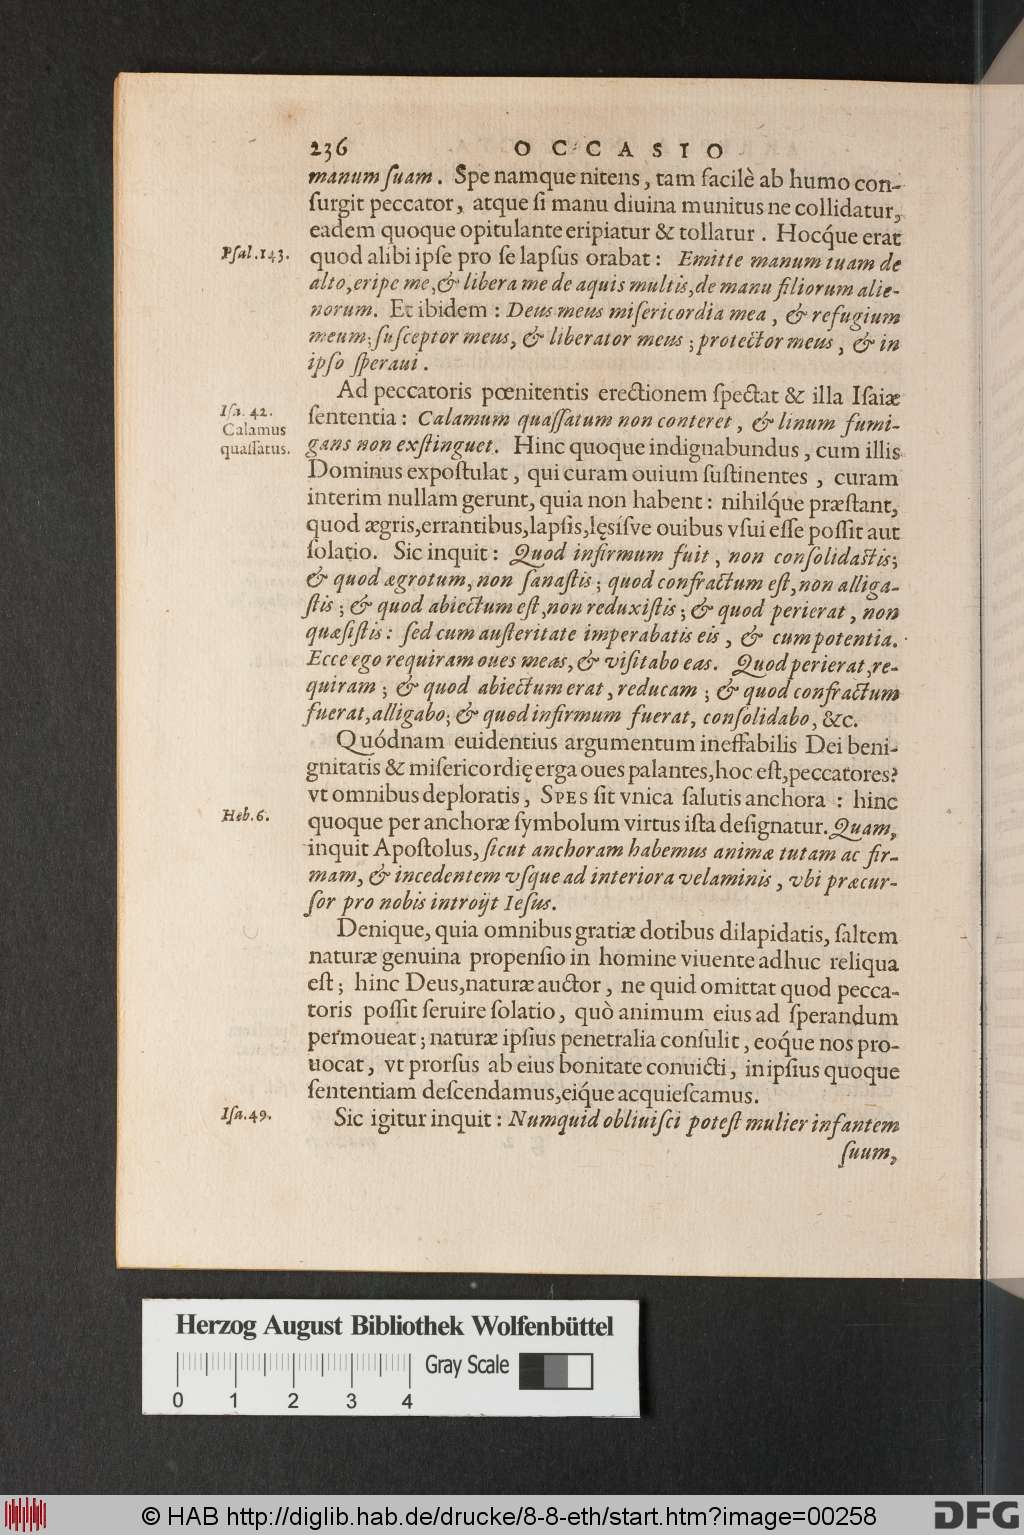 236 OCCASIO
manum ſuam. Spe namque nitens, tam facilè ab humo con-
ſurgit peccator, atque ſi manu diuina munitus ne collidatur,
eadem quoque opitulante eripiatur & tollatur. Hocq́ue erat
Pſal. 143. quod alibi ipſe pro ſe lapſus orabat: Emitte manum tuam de
alto, eripe me, & libera me de aquis multis, de manu filiorum alie-
norum. Et ibidem: Deus meus miſericordia mea, & refugium
meum; ſuſceptor meus, & liberator meus; protector meus, & in
ipſo ſperaui.
Ad peccatoris pœnitentis erectionem ſpectat & illa Iſaiæ
Iſa. 42. ſententia: Calamum quaſſatum non conteret, & linum fumi-
Calamus
quaſſatus. gans non exſtinguet. Hinc quoque indignabundus, cum illis
Dominus expoſtulat, qui curam ouium ſuſtinentes, curam
interim nullam gerunt, quia non habent: nihilq́ue præſtant,
quod ægris, errantibus, lapſis, lęsiſve ouibus vſui eſſe poſſit aut
ſolatio. Sic inquit: Quod infirmum fuit, non conſolidaſtis;
& quod ægrotum, non ſanaſtis; quod confractum eſt, non alliga-
ſtis; & quod abiectum eſt, non reduxiſtis; & quod perierat, non
quæſiſtis: ſed cum auſteritate imperabatis eis, & cum potentia.
Ecce ego requiram oues meas, & viſitabo eas. Quod perierat, re-
quiram; & quod abiectum erat, reducam; & quod confractum
fuerat, alligabo; & quod infirmum fuerat, conſolidabo, &c.
Quódnam euidentius argumentum ineffabilis Dei beni-
gnitatis & miſericordię erga oues palantes, hoc eſt, peccatores?
vt omnibus deploratis, SPES ſit vnica ſalutis anchora: hinc
Heb. 6. quoque per anchoræ ſymbolum virtus iſta deſignatur. Quam,
inquit Apoſtolus, ſicut anchoram habemus animæ tutam ac fir-
mam, & incedentem vſque ad interiora velaminis, vbi præcur-
ſor pro nobis introijt Ieſus.
Denique, quia omnibus gratiæ dotibus dilapidatis, ſaltem
naturæ genuina propenſio in homine viuente adhuc reliqua
eſt; hinc Deus, naturæ auctor, ne quid omittat quod pecca-
toris poſſit ſeruire ſolatio, quò animum eius ad ſperandum
permoueat; naturæ ipſius penetralia conſulit, eoq́ue nos pro-
uocat, vt prorſus ab eius bonitate conuicti, in ipſius quoque
ſententiam deſcendamus, eiq́ue acquieſcamus.
Iſa. 49. Sic igitur inquit: Numquid obliuiſci poteſt mulier infantem
ſuum,
Herzog August Bibliothek Wolfenbüttel
Gray Scale
0 1 2 3 4
© HAB http://diglib.hab.de/drucke/8-8-eth/start.htm?image=00258
DFG